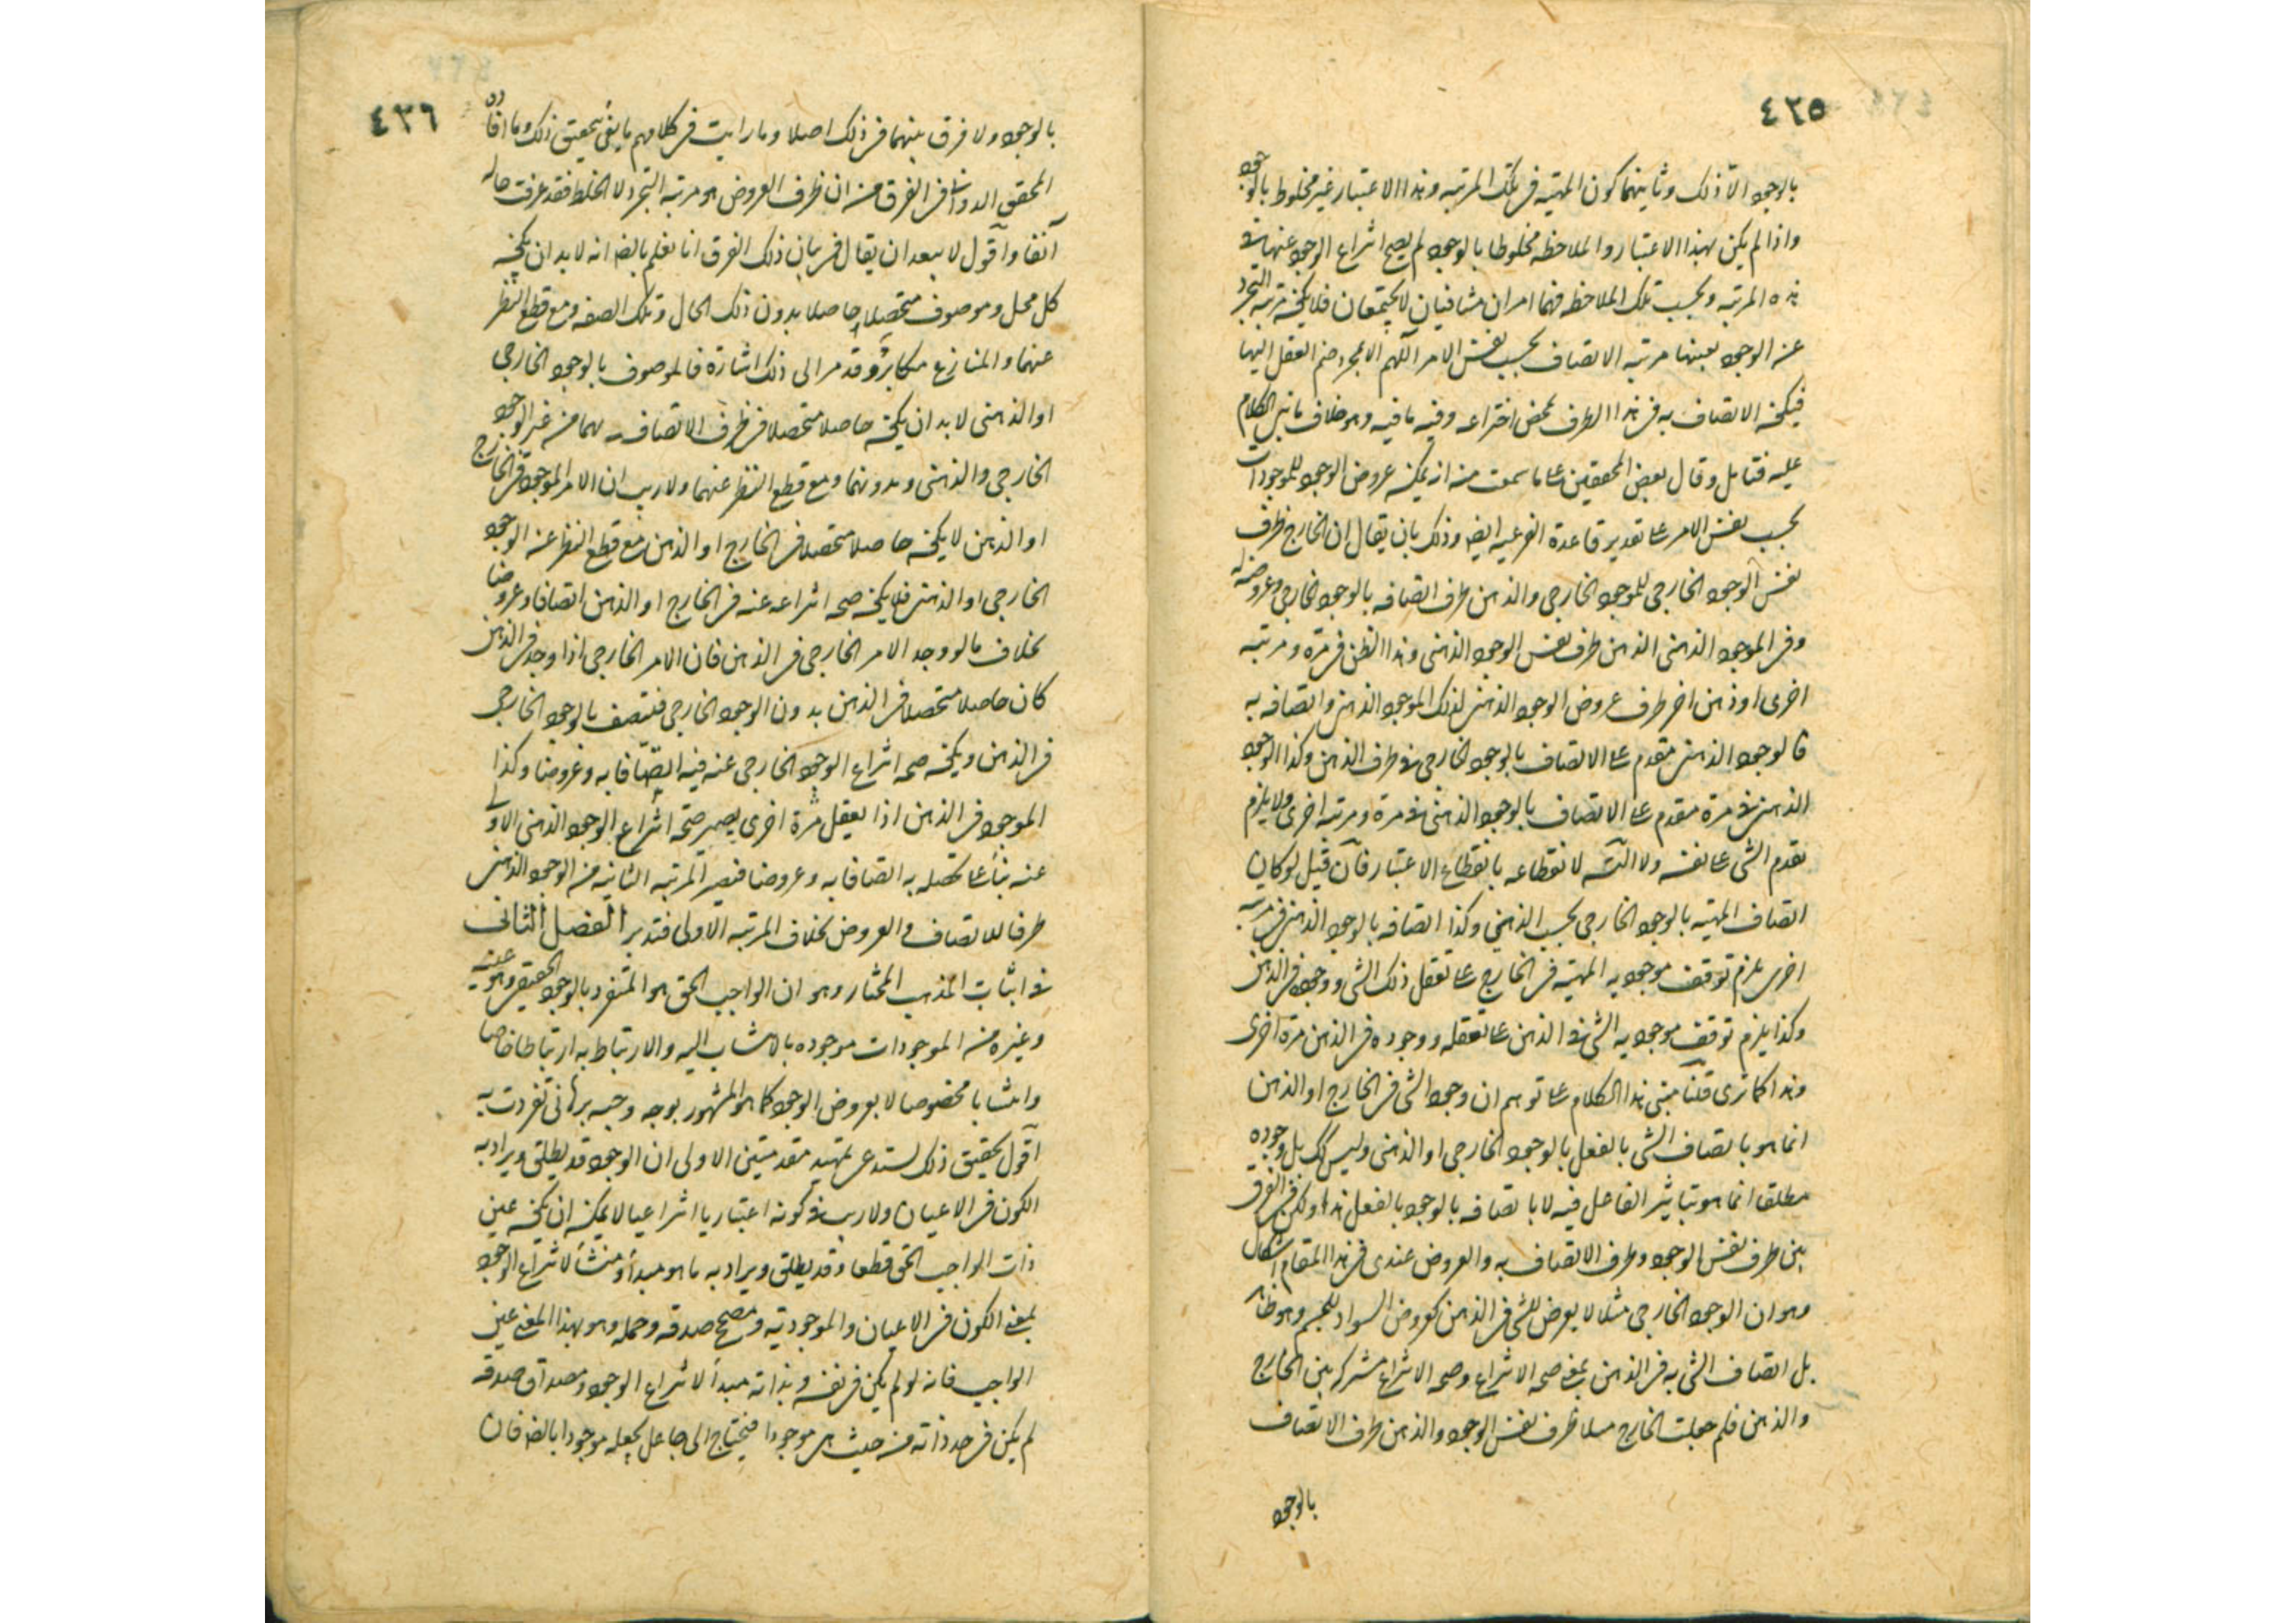 ٤٣٥
بالوجود الّا ذلك وثانيهما كون المهية فى تلك المرتبه وهذا الاعتبار غير مخلوط بالوجود
واذا لم يكن بهذا الاعتبار والملاحظه مخلوطا بالوجود لم يصح انتزاع الوجود عنها فى
هذه المرتبه وبحسب تلك الملاحظه فهما امران متنافيان لا يجتمعان فلا يكون مرتبه التجرد
عن الوجود بعينها مرتبه الاتصاف بحسب نفس الامر اللهم الا بمجرد ضم العقل اليها
فيكون الاتصاف به فى هذا الظرف بمحض اختراعه وفيه ما فيه وهو خلاف ما بنى الكلام
عليه فتامل وقال بعض المحققين على ما سمعت منه انه يمكن عروض الوجود للموجودات
بحسب نفس الامر على تقدير قاعدة الفرعيه ايضا وذلك بان يقال ان الخارج ظرف
نفس الوجود الخارجى للموجود الخارجى والذهن ظرف اتصافه بالوجود الخارجى وعروضه له
وفى الموجود الذهنى الذهن ظرف نفس الوجود الذهنى وهذا الظن فى مرّة ومرتبه
اخرى او ذهن اخر ظرف عروض الوجود الذهنى لذلك الموجود الذهنى واتصافه به
فالوجود الذهنى متقدم على الاتصاف بالوجود الخارجى فى ظرف الذهن وكذا الوجود
الذهنى فى مرة متقدم على الاتصاف بالوجود الذهنى فى مرة ومرتبه اخرى ولا يلزم
تقدم الشى على نفسه ولا التسه لانقطاعه بانقطاع الاعتبار فان قيل لو كان
اتصاف المهيّه بالوجود الخارجى بحسب الذهنى وكذا اتصافه بالوجود الذهنى فى مرتبه
اخرى يلزم توقف موجوديه المهيّه فى الخارج على تعقل ذلك الشى ووجوده فى الذهن
وكذا يلزم توقف موجوديه الشى فى الذهن على تعقله ووجوده فى الذهن مرّة اخرى
وهذا كما ترى قلنا مبنى هذا الكلام على توهم ان وجود الشى فى الخارج او الذهن
انما هو باتصاف الشى بالفعل بالوجود الخارجى او الذهنى وليس كك بل وجوده
مطلقا انما هو بتاثير الفاعل فيه لا باتصافه بالوجود بالفعل هذا ولكن فى الفرق
بين ظرف نفس الوجود وظرف الاتصاف به والعروض عندى فى هذا المقام اشكال
وهو ان الوجود الخارجى مثلا لا يعرض للشى فى الذهن كعروض السواد للجسم وهو ظاهر
بل اتصاف الشى به فى الذهن بمعنى صحه الانتزاع وصحه الانتزاع مشتركه بين الخارج
والذهن فلم جعلت الخارج مثلا ظرف نفس الوجود والذهن ظرف الاتصاف
بالوجود
٤٣٦
بالوجود ولا فرق بينهما فى ذلك اصلا وما رايت فى كلامهم ما يفى بتحقيق ذلك وما افاده
المحقق الدوانى فى الفرق من ان ظرف العروض هو مرتبه التجرد لا الخلط فقد عرفت حاله
آنفا واقول لا يبعد ان يقال فى بيان ذلك الفرق انا نعلم بالضه انه لا بد ان يكون
كل محل وموصوف متحصلا حاصلا بدون ذلك الحال وتلك الصفه ومع قطع النظر
عنهما والمنازع مكابر وقد مر الى ذلك اشارة فالموصوف بالوجود الخارجى
او الذهنى لا بد ان يكون حاصلا متحصلا فى ظرف الاتصاف بهما من غير الوجود
الخارجى والذهنى وبدونهما ومع قطع النظر عنهما ولا ريب ان الامر الموجود فى الخارج
او الذهن لا يكون حاصلا متحصلا فى الخارج او الذهن مع قطع النظر عن الوجود
الخارجى او الذهنى فلا يكون صحه انتزاعه عنه فى الخارج او الذهن اتصافا وعروضا
بخلاف ما لو وجد الامر الخارجى فى الذهن فان الامر الخارجى اذا وجد فى الذهن
كان حاصلا متحصلا فى الذهن بدون الوجود الخارجى فيتصف بالوجود الخارجى
فى الذهن ويكون صحه انتزاع الوجود الخارجى عنه فيه اتصافا به وعروضا وكذا
الموجود فى الذهن اذا يعقل مرّة اخرى يصير صحّه انتزاع الوجود الذهنى الاول
عنه بناء على تحصله به اتصافا به وعروضا فتصير المرتبه الثانيه من الوجود الذهنى
ظرفا للاتصاف والعروض بخلاف المرتبه الاولى فتدبر الفصل الثانى
فى اثبات المذهب المختار وهو ان الواجب الحق هو المتفرد بالوجود الحقيقى وهو عينه
وغيره من الموجودات موجوده بالانتساب اليه والارتباط به ارتباطا خاصا
وانتسابا مخصوصا لا بعروض الوجود كما هو المشهور بوجه وجيه برهانى تفردت به
اقول تحقيق ذلك يستدعى تمهيد مقدمتين الاولى ان الوجود قد يطلق ويراد به
الكون فى الاعيان ولا ريب فى كونه اعتباريا انتزاعيا لا يمكن ان يكون عين
ذات الواجب الحق قطعا وقد يطلق ويراد به ما هو مبدأ ومنشأ لانتزاع الوجود
بمعنى الكون فى الاعيان والموجوديّه ومصحح صدقه وحمله وهو بهذا المعنى عين
الواجب فانه لو لم يكن فى نفسه وبذاته مبدأ لانتزاع الوجود ومصداق صدقه
لم يكن فى حد ذاته من حيث هى موجودا فيحتاج الى جاعل يجعله موجودا بالضه فان